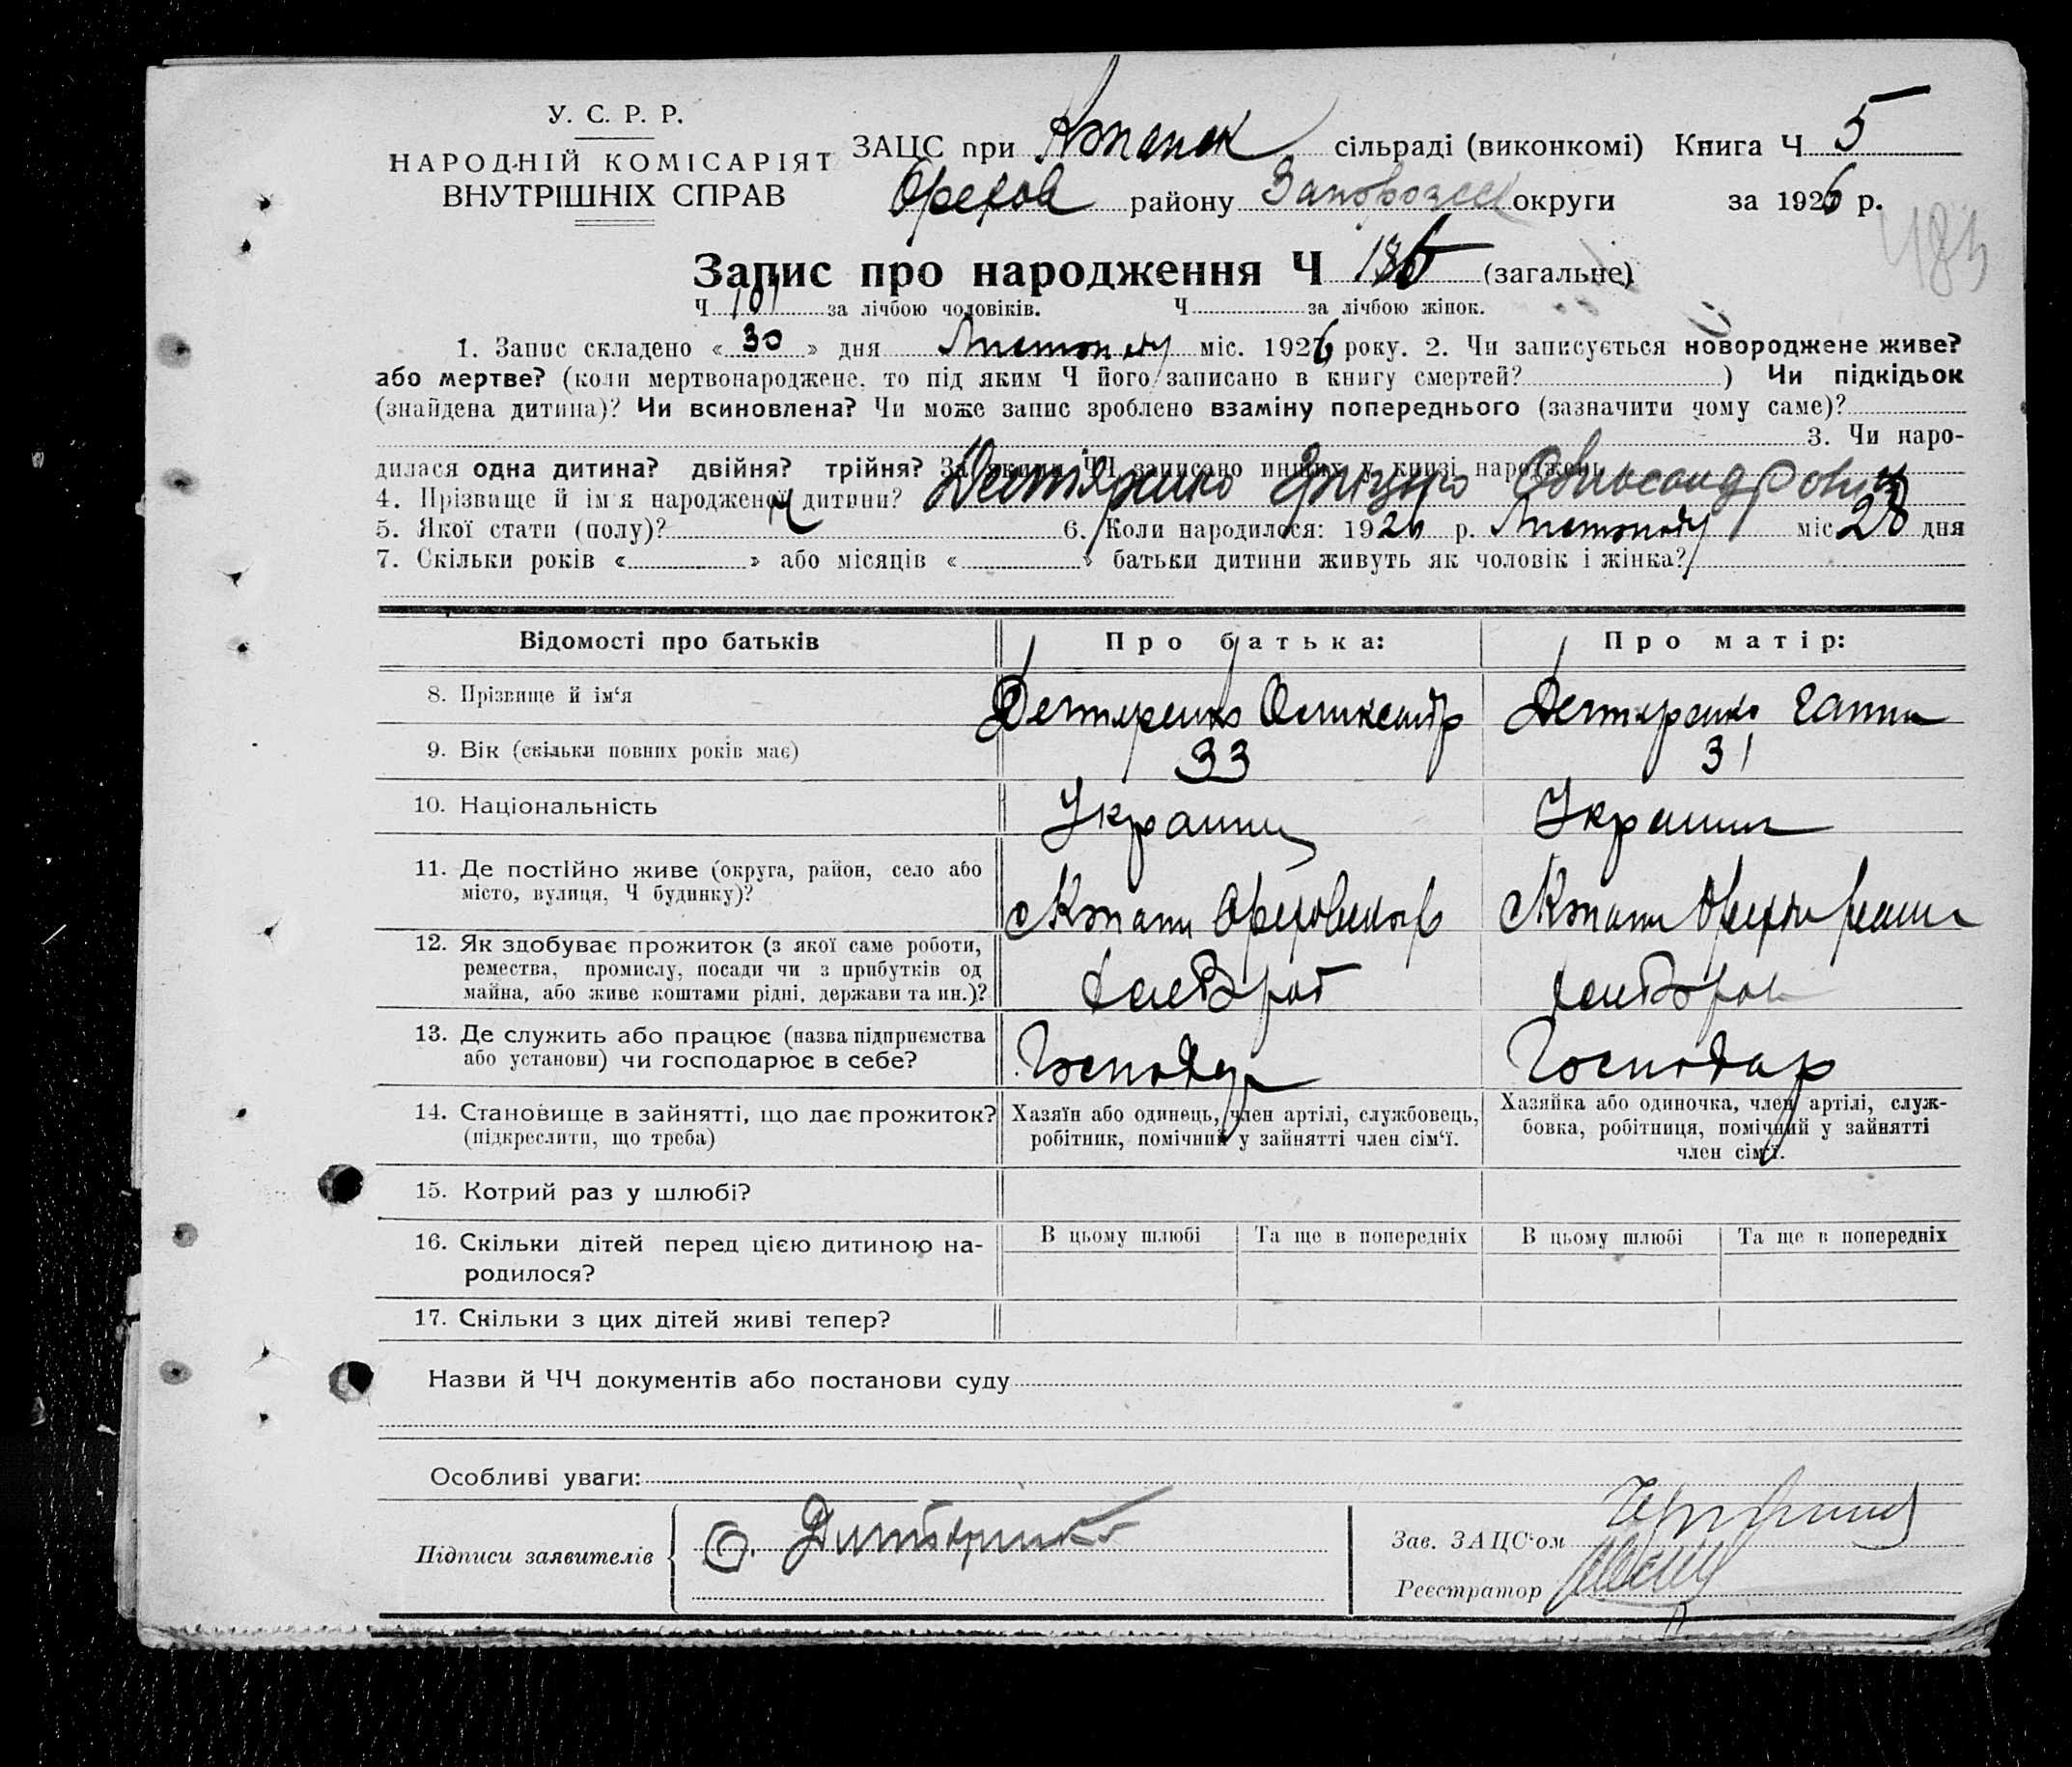 У. С. Р. Р.
НАРОДНІЙ КОМІСАРІЯТ
ВНУТРІШНІХ СПРАВ
ЗАЦС при Копанск сільраді (виконкомі) Книга Ч 5
Орехов району Запорозск округи за 1926 р.
483
Запис про народження Ч (загальне)
Ч 101 за лічбою чоловіків. Ч за лічбою жінок.
1. Запис складено « 30 » дня Листопаду міс. 1926 року. 2. Чи записується новороджене живе?
або мертве? (коли мертвонароджене, то під яким Ч його записано в книгу смертей? ) Чи підкідьок
(знайдена дитина)? Чи всиновлена? Чи може запис зроблено взаміну попереднього (зазначити чому саме)?
3. Чи наро-
дилася одна дитина? двійня? трійня? За якими ЧЧ записано инших у книзі народжень
4. Прізвище й ім'я народженої дитини? Дегтяренко
5. Якої стати (полу)? Ч 6. Коли народилося: 1926 р. Листопаду міс 28 дня
7. Скільки років « » або місяців « » батьки дитини живуть як чоловік і жінка?
Відомості про батьків Про батька: Про матір:
8. Прізвище й ім'я Дегтяренко Олександр Дегтяренко Ганна
9. Вік (скільки повних років має) 33 31
10. Національність Украинц Украинк
11. Де постійно живе (округа, район, село або
місто, вулиця, Ч будинку)?
12. Як здобуває прожиток (з якої саме роботи,
ремества, промислу, посади чи з прибутків од
майна, або живе коштами рідні, держави та ин.)?
13. Де служить або працює (назва підприємства
або установи) чи господарює в себе? Господар Господар
14. Становище в зайнятті, що дає прожиток?
(підкреслити, що треба)
Хазяїн або одинець, член артілі, службовець,
робітник, помічний у зайнятті член сім'ї.
Хазяйка або одиночка, член артілі, служ-
бовка, робітниця, помічний у зайнятті
член сім'ї.
15. Котрий раз у шлюбі?
16. Скільки дітей перед цією дитиною на-
родилося?
В цьому шлюбі Та ще в попередніх В цьому шлюбі Та ще в попередніх
17. Скільки з цих дітей живі тепер?
Назви й ЧЧ документів або постанови суду
Особливі уваги:
Підписи заявителів
Зав. ЗАЦС'ом
Реєстратор